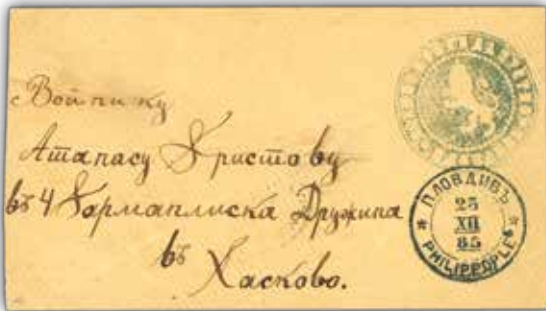 Войнику
Атанасу Христову
въ 4 Хармаплиска Дружина
въ
Хасково.
ПЛОВДИВЪ
25
XII
85
PHILIPPOPLE